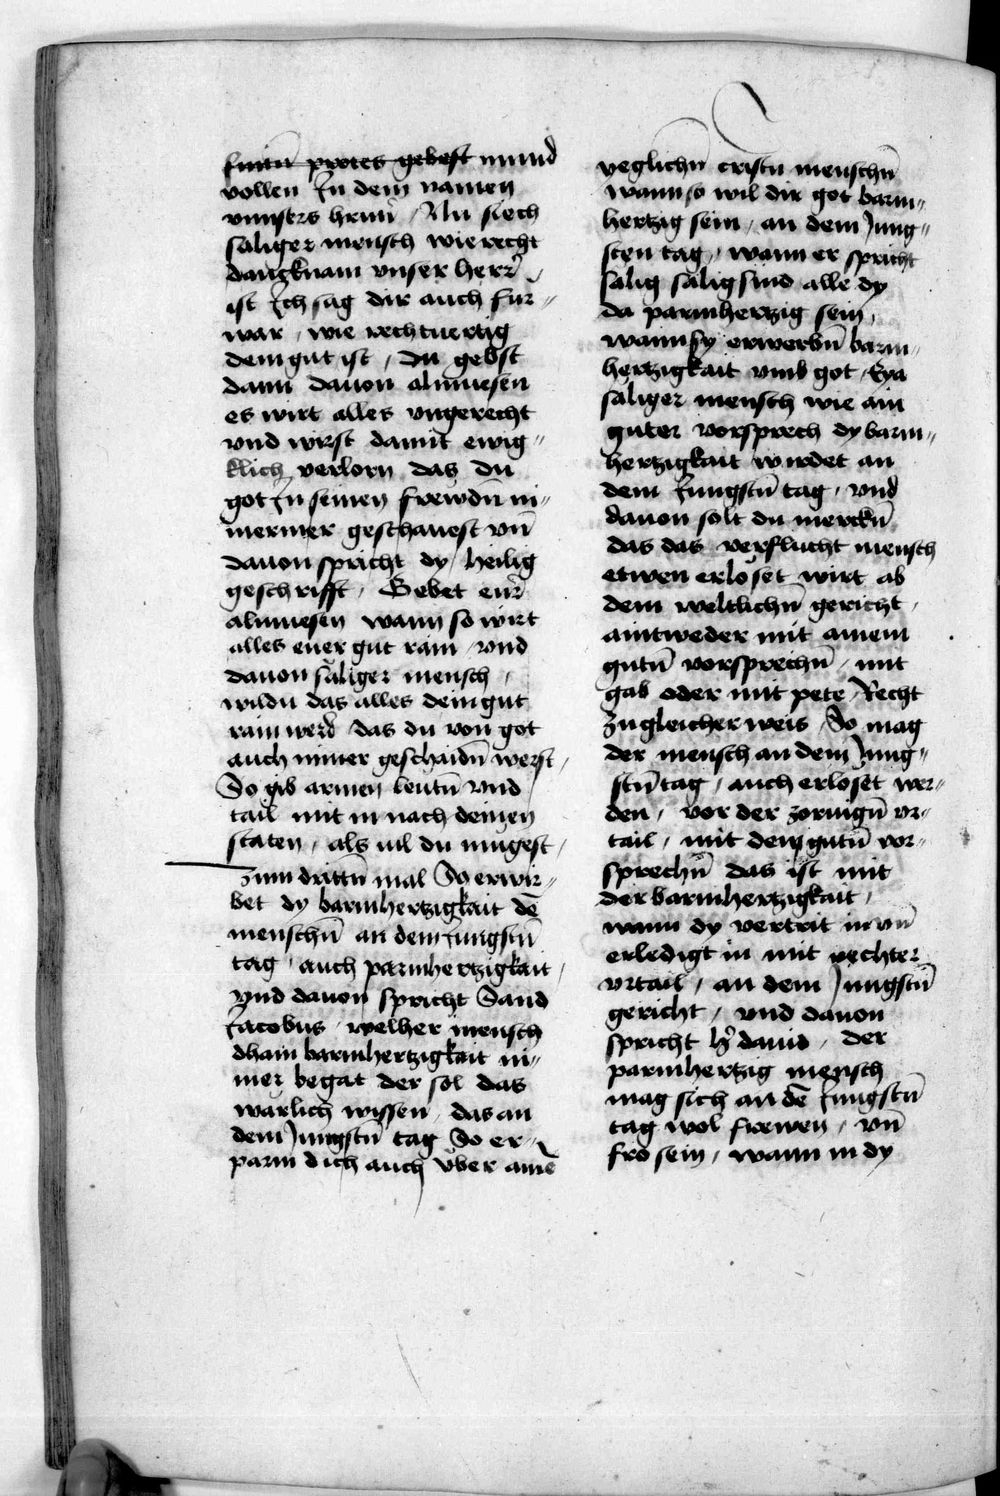 funtū protes gebest mund
vollen In dem namen
vnnsers herrñ / Nu siech
saliger mensch wie recht
dancknam vnser herr̄ /
ist Ich sag dir auch fur„
war / wie rechtuertig
dein gut ist / du gebst
dann dauon almuesen
es wirt alles vngerecht
vnd wirst damit ewig„
klich verlorn das du
got In seinen frewdn̄ ni„
mermer geschauest vn̄
dauon spricht dy heilig
geschrifft / Gebet eur̄
almuesen wann so wirt
alles euer gut rain / vnd
dauon sāliger mensch /
wildu das alles dein gut
rain werd das du von got
auch nimer geschaidn̄ werst /
So gib armen leutn̄ vnd
tail mit in nach deinen
staten / als vil du mugest /
Zum drittn̄ mal So erwir„
bet dy barmhertzigkait dē
menschn̄ an dem Jungstn̄
tag / auch parmhertzigkait /
vnd dauon spricht Sand
Jacobus / welher mensch
dhain barmhertzigkait ni„
mer begat der sol das
warlich wissen / das an
dem Jungstn̄ tag So er„
parm dich auch vber ainē
yeglichn̄ cristn̄ menschn̄
wann so wil dir got barm„
hertzig sein / an dem Jung„
sten tag / wann er spricht
salig salig sind alle dy
da parmhertzig sein /
wann sy erwerbn̄ barm„
hertzigkait vmb got / Eya
saliger mensch wie ain
guter vorsprech dy barm„
hertzigkait wirdet an
dem Jungstn̄ tag / vnd
dauon solt du merckn̄
das das verflucht mensch
etwen erlöset wirt ab
dem weltlichn̄ gericht /
aintweder mit ainem
gutn̄ vorsprechn̄ / mit
gab oder mit pete / Recht
zu gleicher weis / So mag
der mensch an dem Jung„
stn̄ tag / auch erloset wer„
den / vor der zornign̄ vr„
tail / mit dem gutn̄ vor„
sprechn̄ das ist mit
der barmhertzigkait /
wann dy vertrit in vn̄
erledigt in mit rechter
vrtail / an dem Jungstn̄
gericht / vnd dauon
spricht h̄ dauid / der
parmhertzig mensch
mag sich an dē Jungstn̄
tag wol frewen / vn̄
fro sein / wann in dy